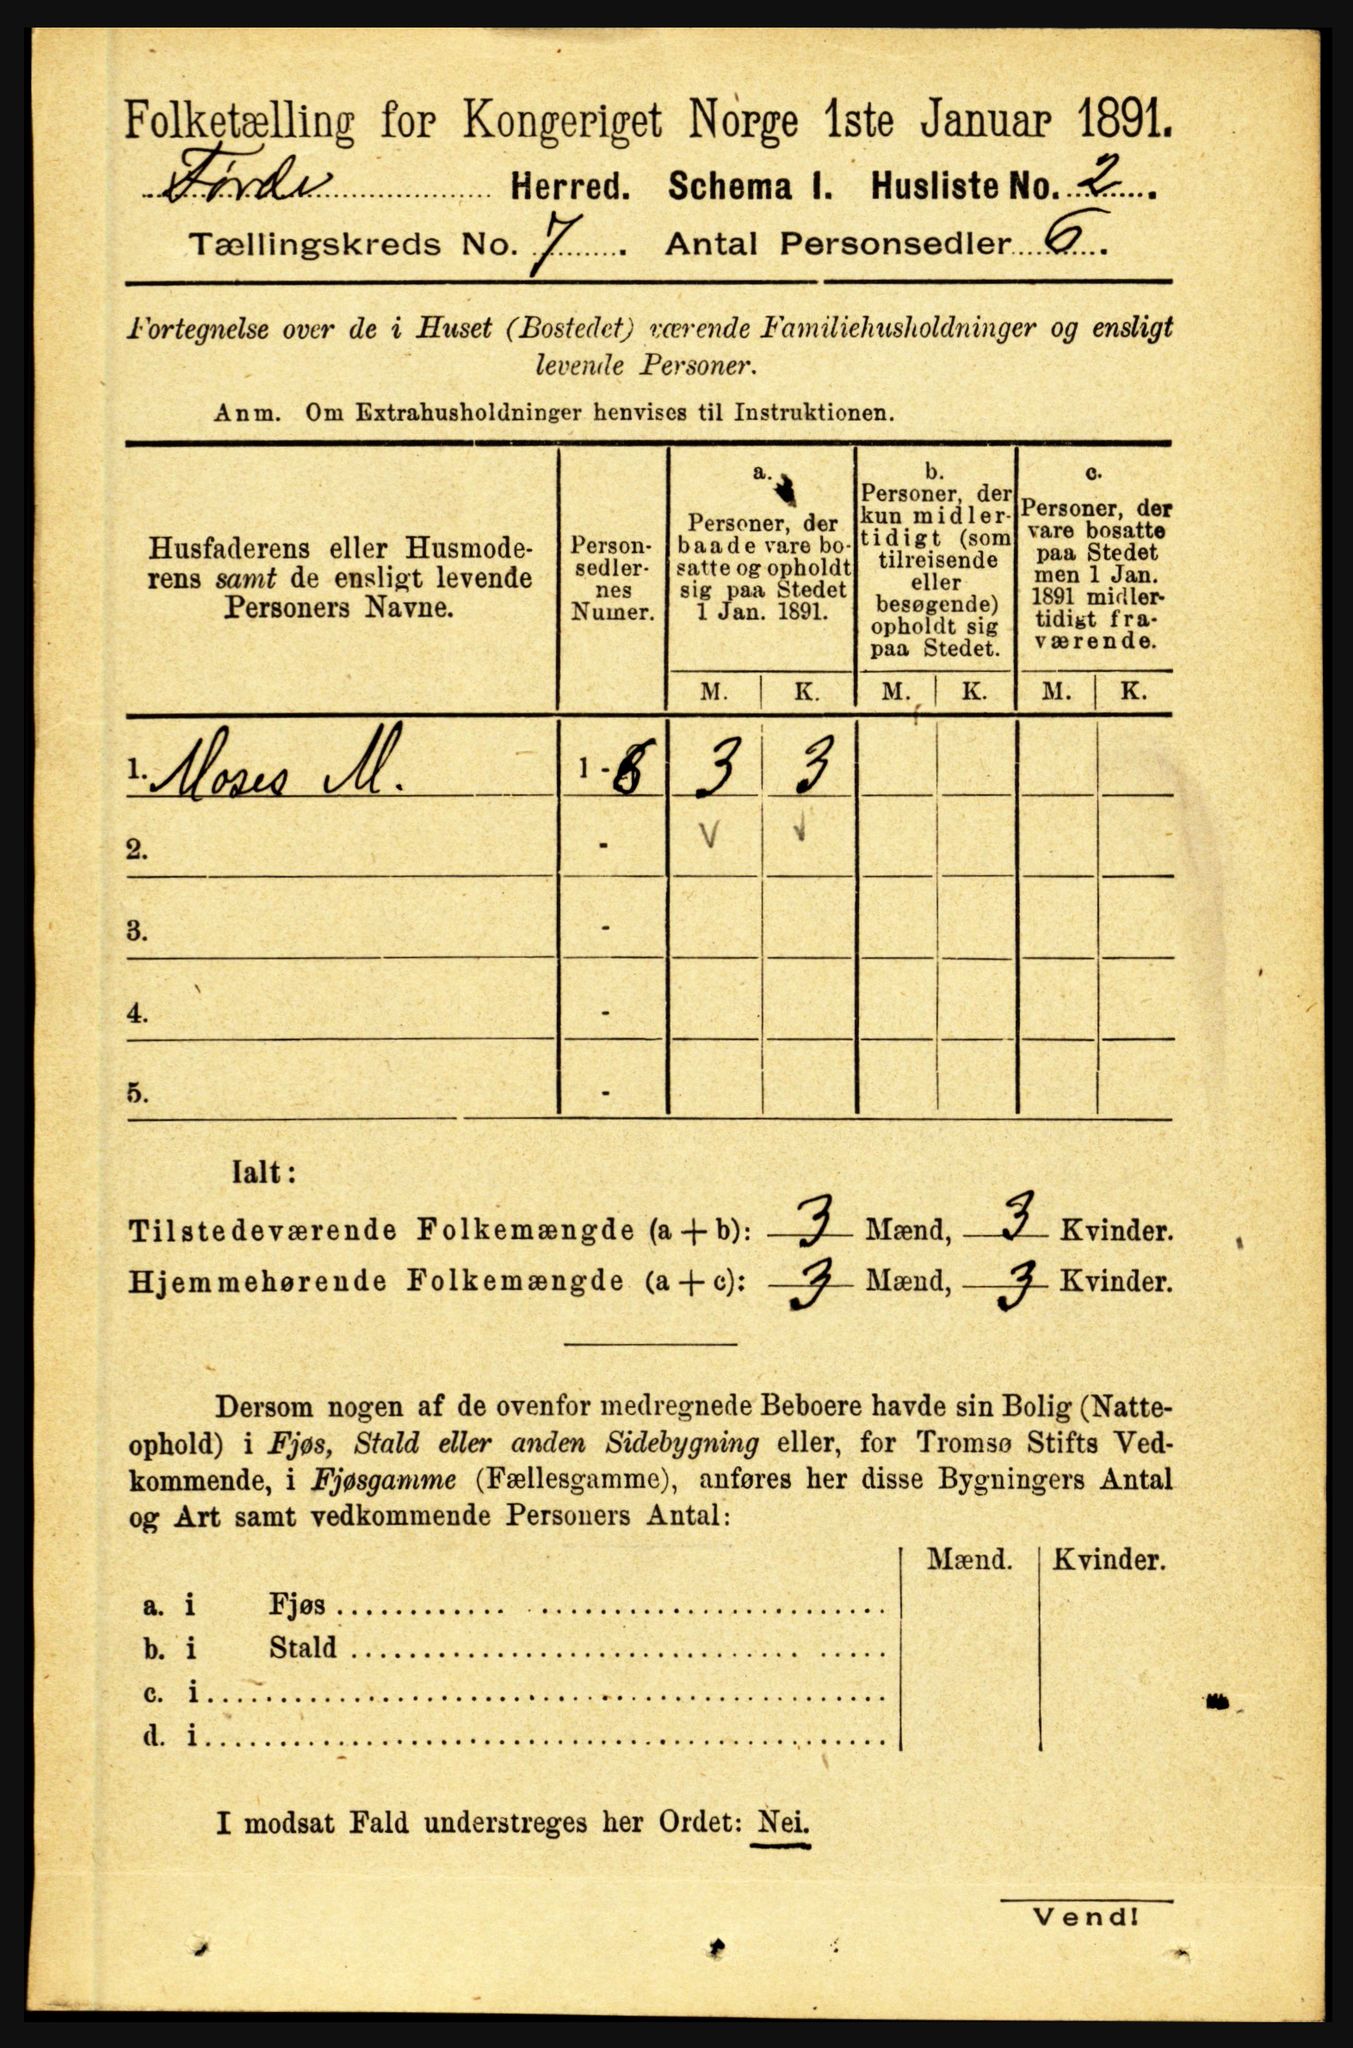 Folketælling for Kongeriget Norge 1ste Januar 1891.
Førde Herred. Schema I. Husliste No. 2.
Tællingskreds No. 7. Antal Personsedler 6.
Fortegnelse over de i Huset (Bostedet) værende Familiehusholdninger og ensligt
levende Personer.
Anm. Om Extrahusholdninger henvises til Instruktionen.
Husfaderens eller Husmode-
rens samt de ensligt levende
Personers Navne.
Person-
sedler-
nes
Numer.
a.
Personer, der
baade vare bo-
satte og opholdt
sig paa Stedet
1 Jan. 1891.
b.
Personer, der
kun midler-
tidigt (som
tilreisende
eller
besøgende)
opholdt sig
paa Stedet.
c.
Personer, der
vare bosatte
paa Stedet
men 1 Jan.
1891 midler-
tidigt fra-
værende.
M. K. M. K. M. K.
1. Moses M. 1 - 6 3 3
2. - v v
3. -
4. -
5. -
Ialt:
Tilstedeværende Folkemængde (a + b): 3 Mænd, 3 Kvinder.
Hjemmehørende Folkemængde (a + c): 3 Mænd, 3 Kvinder.
Dersom nogen af de ovenfor medregnede Beboere havde sin Bolig (Natte-
ophold) i Fjøs, Stald eller anden Sidebygning eller, for Tromsø Stifts Ved-
kommende, i Fjøsgamme (Fællesgamme), anføres her disse Bygningers Antal
og Art samt vedkommende Personers Antal:
Mænd. Kvinder.
a. i Fjøs
b. i Stald
c. i
d. i
I modsat Fald understreges her Ordet: Nei.
Vend!